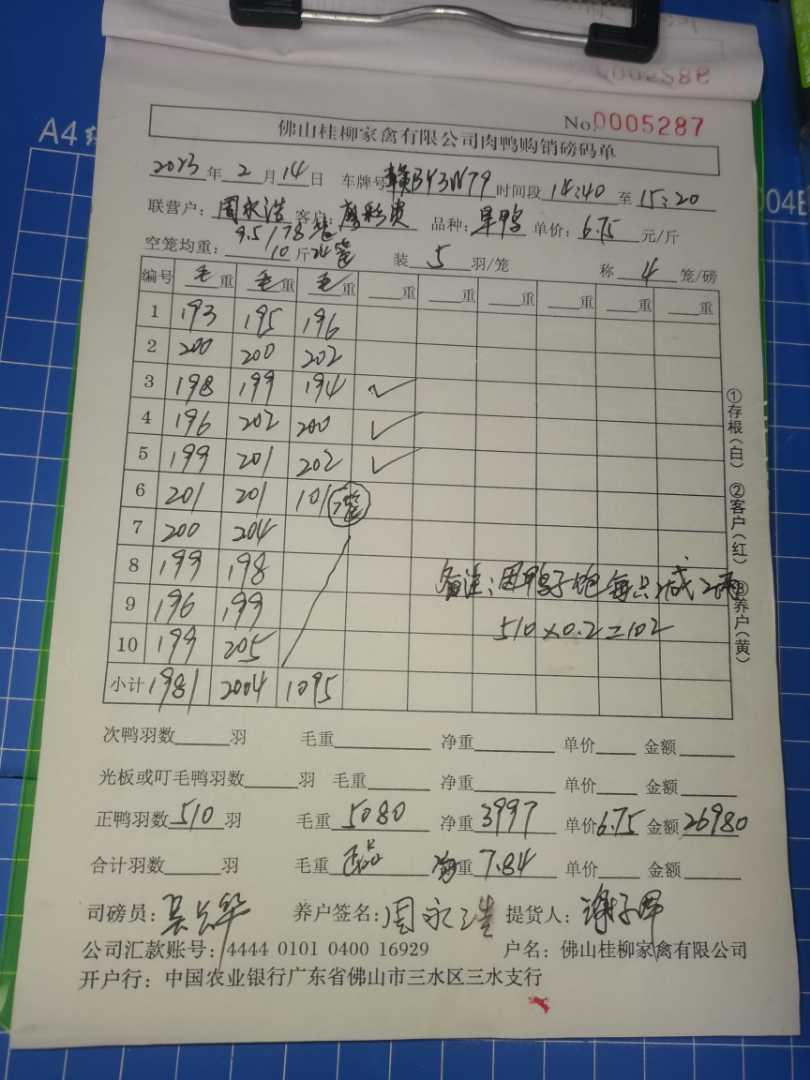 No.0005287
佛山桂柳家禽有限公司肉鸭购销磅码单
2023年2月14日 车牌号赣BY3W79时间段14:40至15:20
联营户：周永浩 客户：廖彩贵 品种：旱鸭 单价：6.75元/斤
9.5/78笼
空笼均重：10斤24笼 装5羽/笼 称4笼/磅
编号 毛重 毛重 毛重 重 重 重 重 重 重
1 193 195 196
2 200 200 202
3 198 199 194 ✓
4 196 202 200 ✓
5 199 201 202 ✓
6 201 201 101 2笼
7 200 204
8 199 198
9 196 199
10 199 205
小计 1981 2004 1095
备注：因鸭子饱每只减2两
510×0.2=102
①存根（白） ②客户（红） ③养户（黄）
次鸭羽数 羽 毛重 净重 单价 金额
光板或叮毛鸭羽数 羽 毛重 净重 单价 金额
正鸭羽数510羽 毛重5080 净重3997 单价6.75 金额26980
合计羽数 羽 毛重 净重7.84 单价 金额
司磅员： 养户签名：周永浩 提货人：
公司汇款账号：4444 0101 0400 16929 户名：佛山桂柳家禽有限公司
开户行：中国农业银行广东省佛山市三水区三水支行